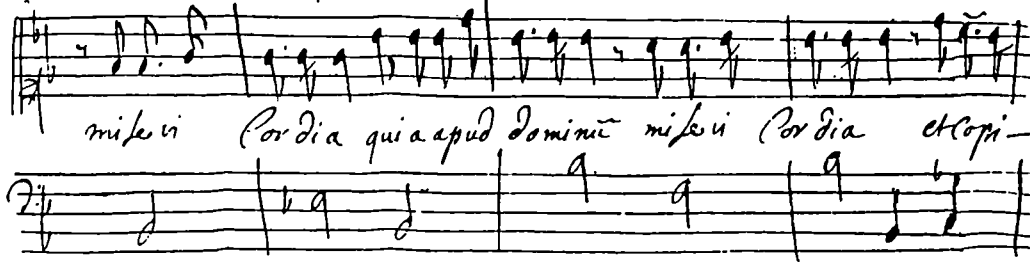 miseri Cordia quia apud dominũ miseri Cordia et Copi-